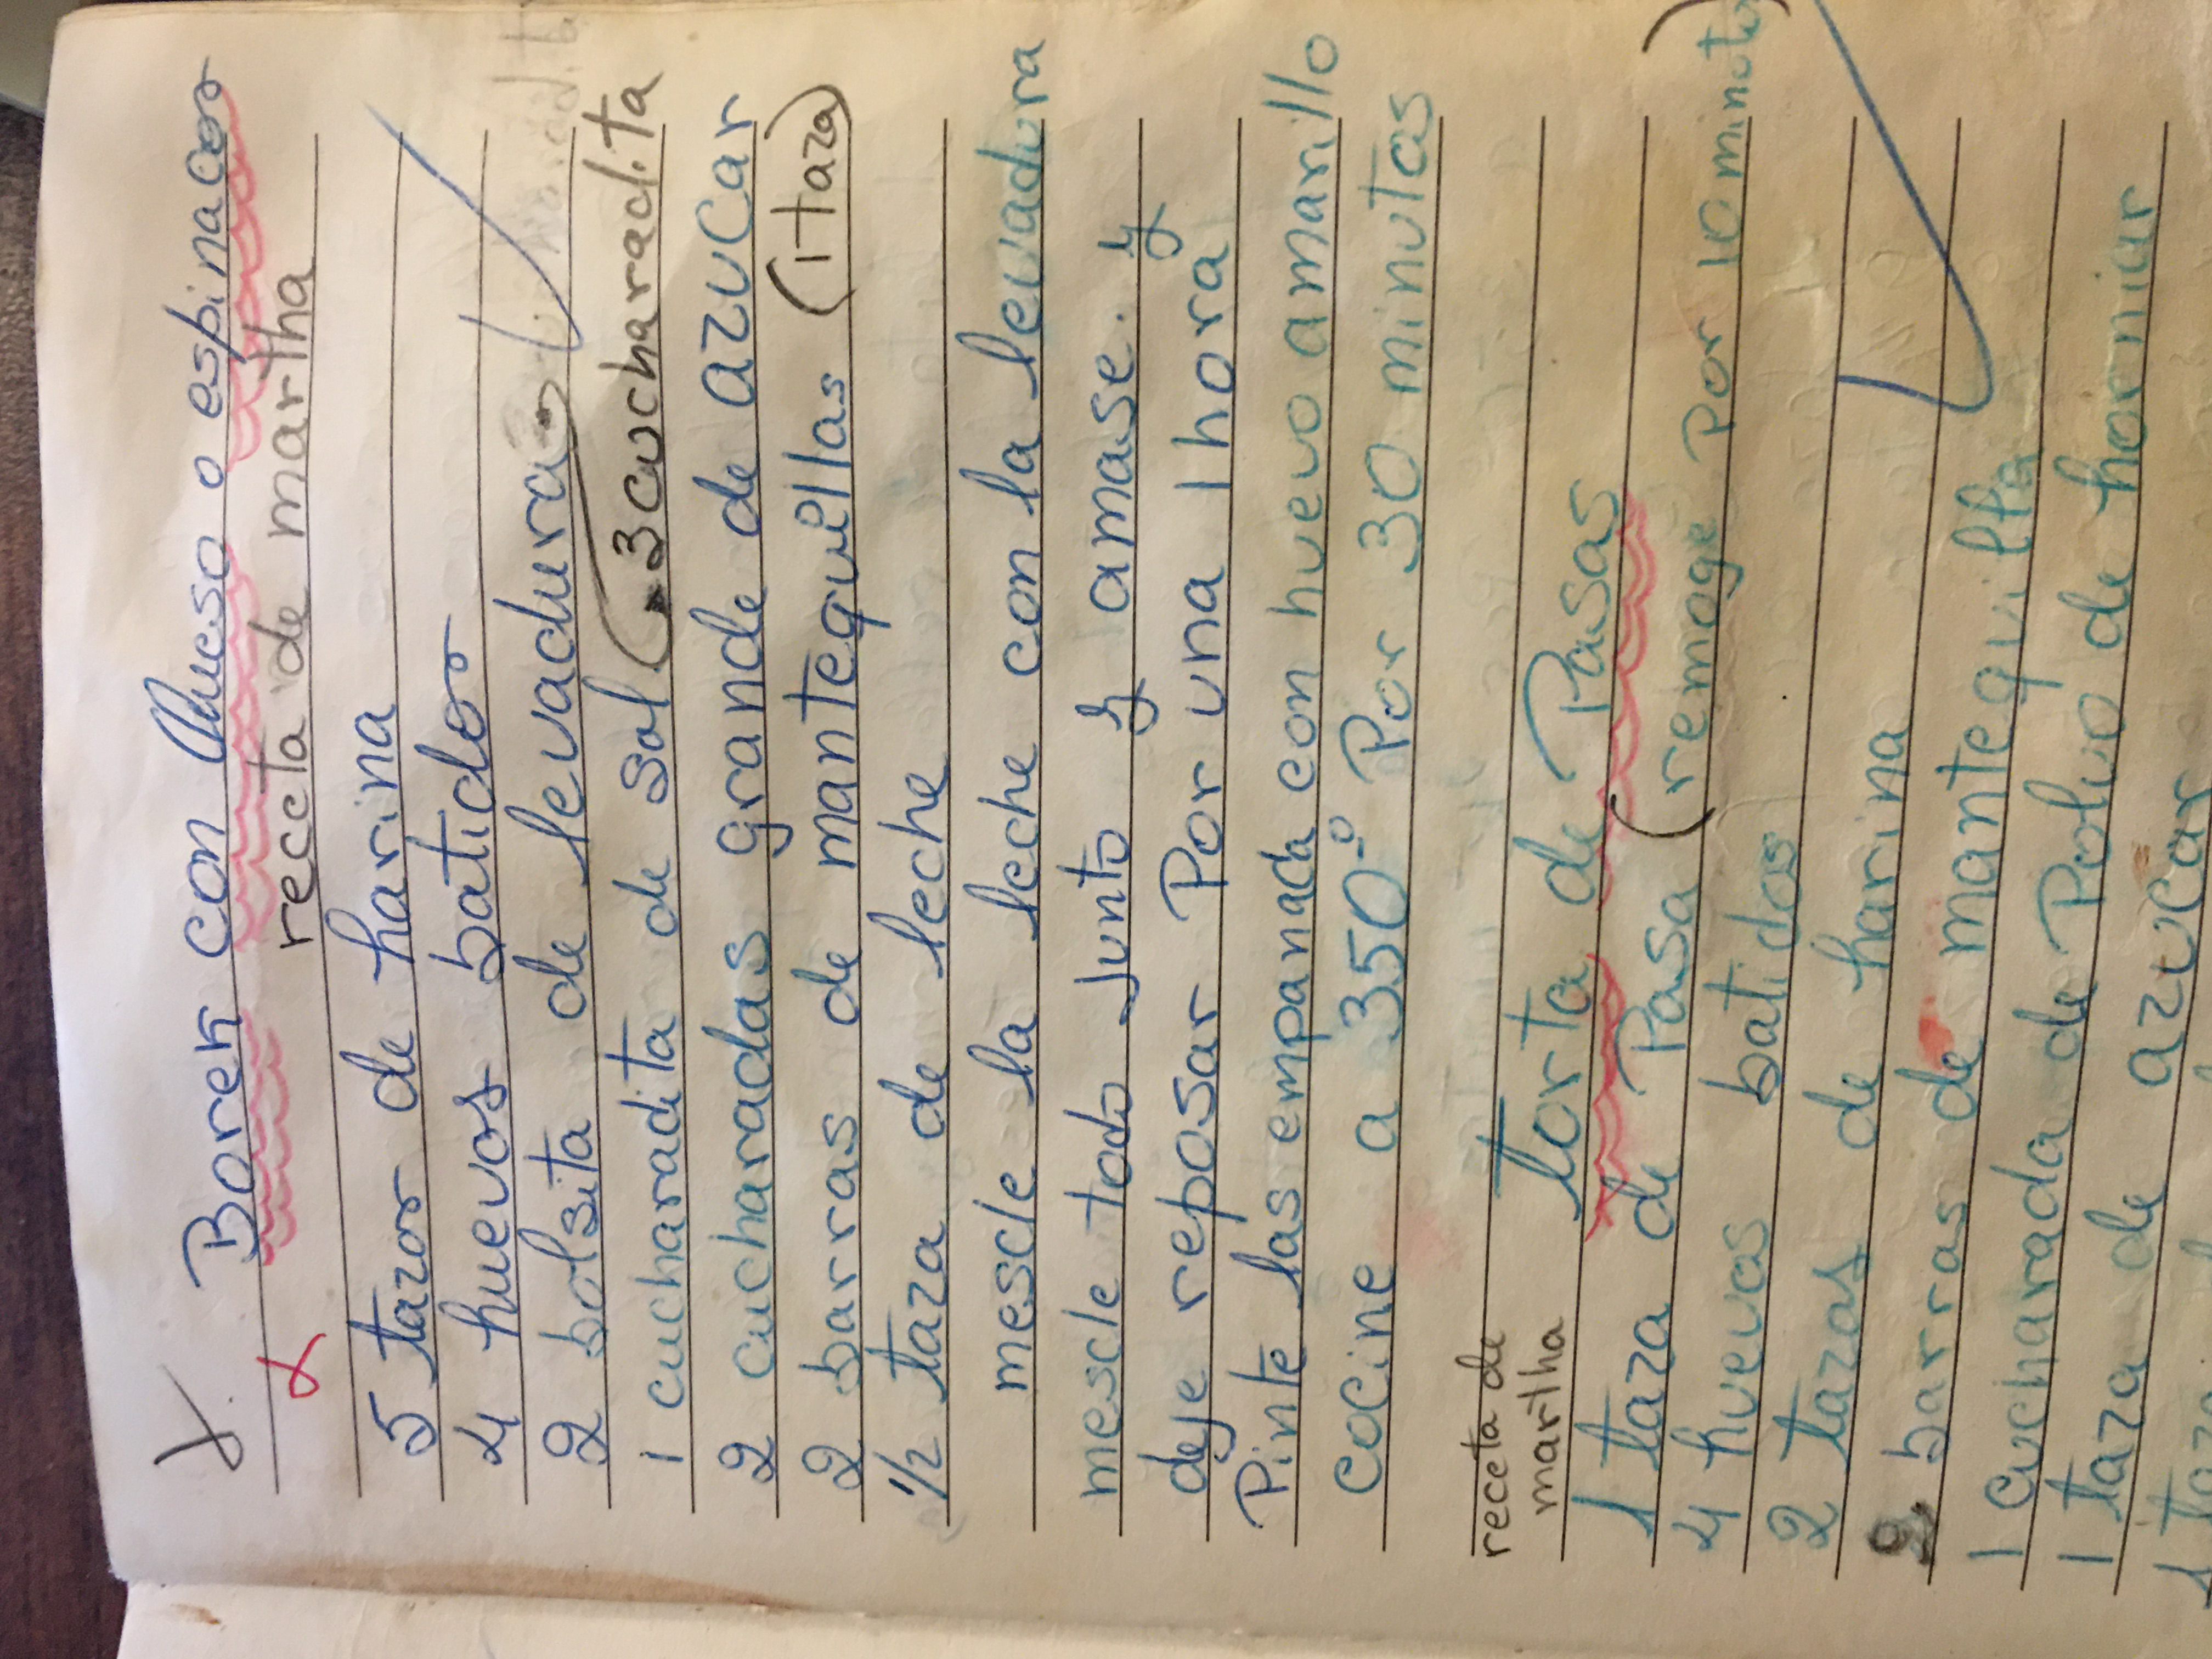 Borek con Queso o espinacas
receta de martha
5 tazas de harina
4 huevos batidos
2 bolsita de levadura
1 cucharadita de sal. 3 cucharadita
2 cucharadas grande de azucar
2 barras de mantequillas (1 taza)
1/2 taza de leche
mescle la leche con la levadura
mescle todo junto y amase. y
deje reposar Por una 1 hora
Pinte las empanada con huevo amarillo
cocine a 350º Por 30 minutos
receta de
martha
torta de Pasas
1 taza de Pasa (remoge Por 10 minutos)
4 huevos batidos
2 tazas de harina
2 barras de mantequilla
1 cucharada de Polvo de horniar
1 taza de azucar
1 taza